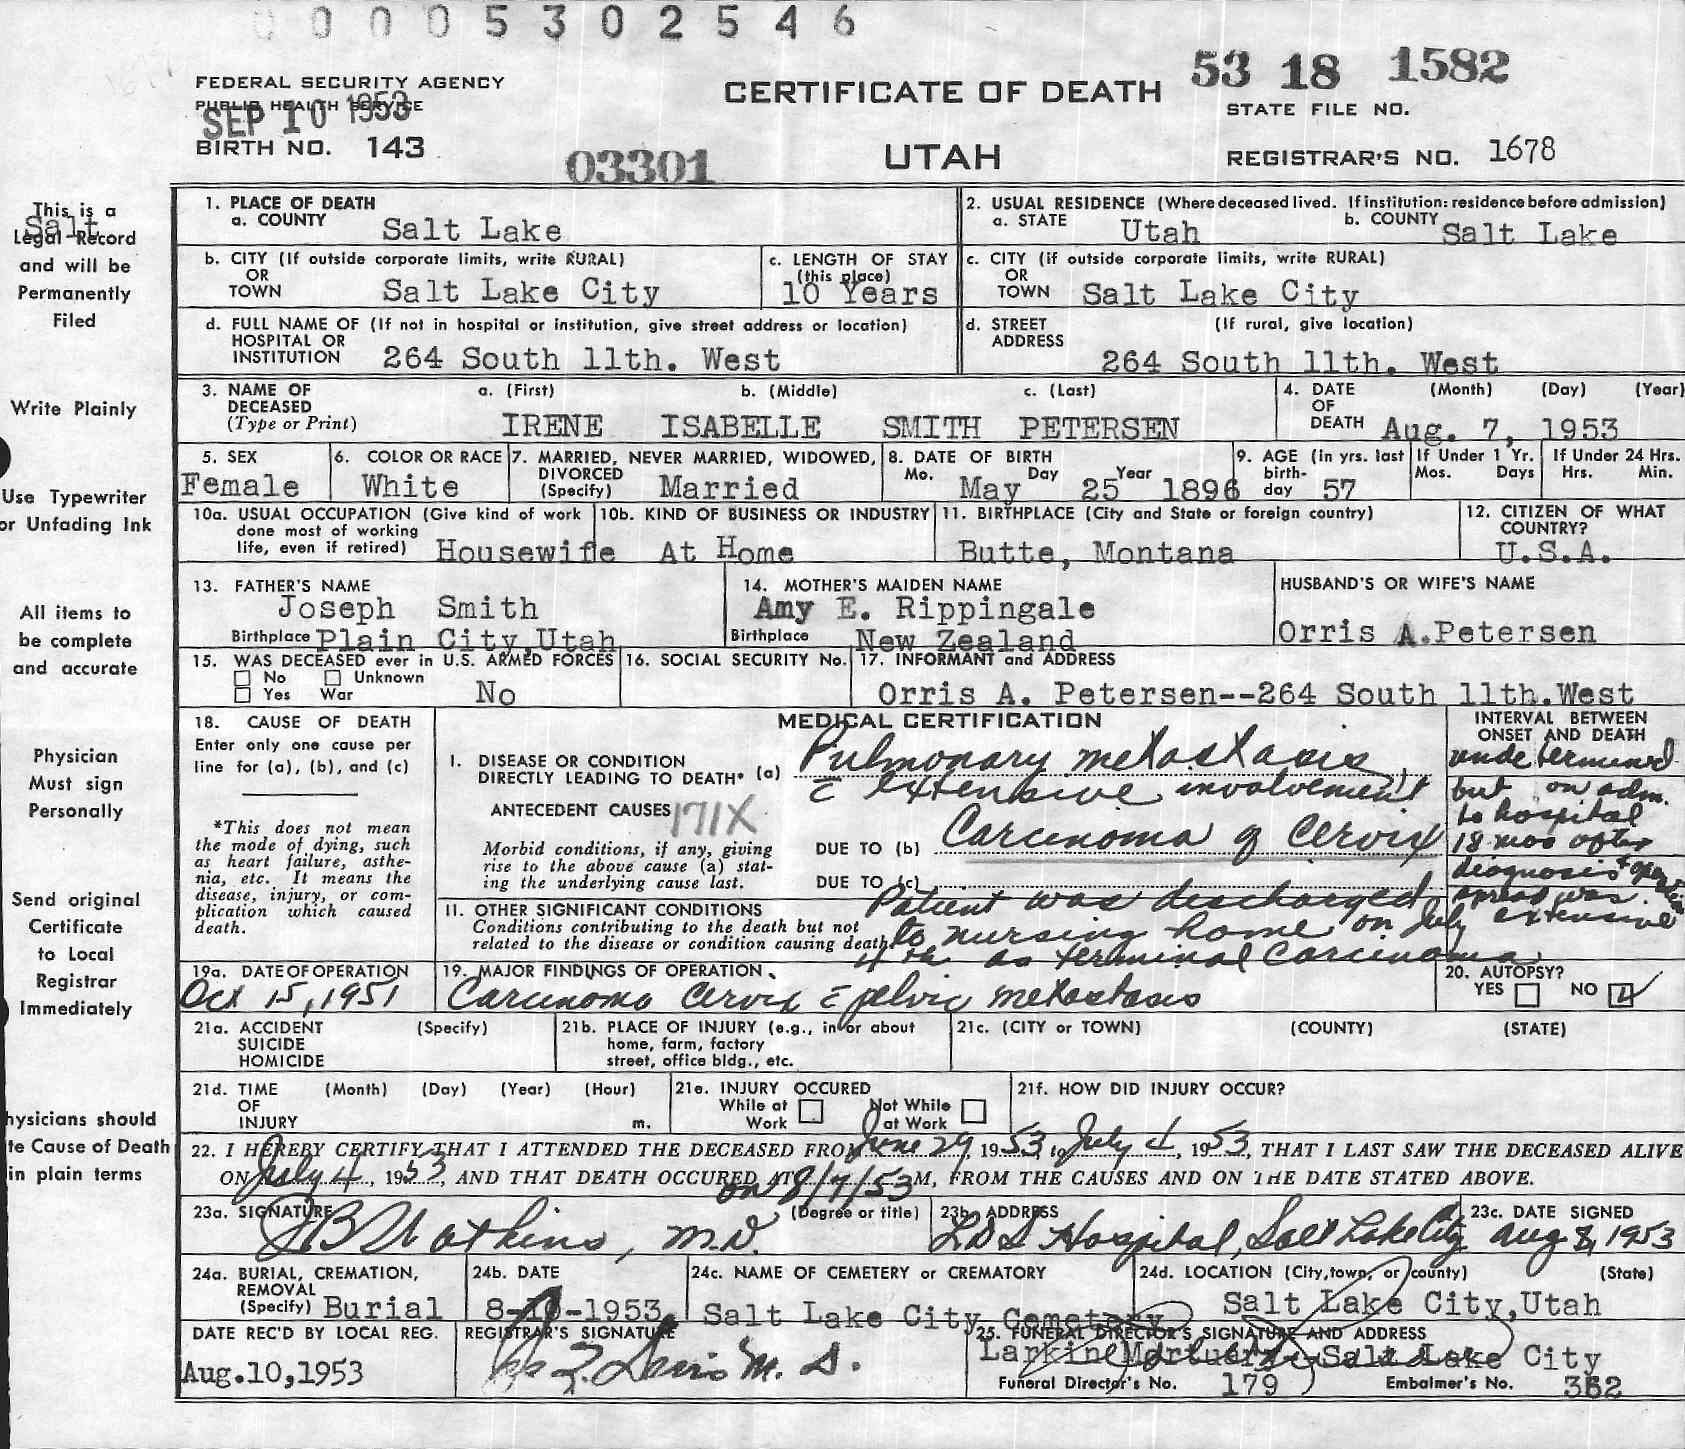 0 0 0 5 3 0 2 5 4 6
FEDERAL SECURITY AGENCY
PUBLIC HEALTH SERVICE
SEP 10 1953
BIRTH NO. 143
03301
CERTIFICATE OF DEATH
UTAH
53 18 1582
STATE FILE NO.
REGISTRAR'S NO. 1678
This is a
Salt
Legal Record
and will be
Permanently
Filed
Write Plainly
Use Typewriter
or Unfading Ink
All items to
be complete
and accurate
Physician
Must sign
Personally
Send original
Certificate
to Local
Registrar
Immediately
hysicians should
te Cause of Death
in plain terms
1. PLACE OF DEATH
a. COUNTY Salt Lake
2. USUAL RESIDENCE (Where deceased lived. If institution: residence before admission)
a. STATE Utah b. COUNTY Salt Lake
b. CITY (If outside corporate limits, write RURAL)
OR
TOWN Salt Lake City
c. LENGTH OF STAY
(this place)
10 Years
c. CITY (if outside corporate limits, write RURAL)
OR
TOWN Salt Lake City
d. FULL NAME OF (If not in hospital or institution, give street address or location)
HOSPITAL OR
INSTITUTION 264 South 11th. West
d. STREET (If rural, give location)
ADDRESS
264 South 11th. West
3. NAME OF a. (First) b. (Middle) c. (Last)
DECEASED
(Type or Print) IRENE ISABELLE SMITH PETERSEN
4. DATE (Month) (Day) (Year)
OF
DEATH Aug. 7, 1953
5. SEX
Female
6. COLOR OR RACE
White
7. MARRIED, NEVER MARRIED, WIDOWED,
DIVORCED
(Specify) Married
8. DATE OF BIRTH
Mo. Day Year
May 25 1896
9. AGE (in yrs. last
birth-
day 57
If Under 1 Yr.
Mos. Days
If Under 24 Hrs.
Hrs. Min.
10a. USUAL OCCUPATION (Give kind of work
done most of working
life, even if retired) Housewife
10b. KIND OF BUSINESS OR INDUSTRY
At Home
11. BIRTHPLACE (City and State or foreign country)
Butte, Montana
12. CITIZEN OF WHAT
COUNTRY?
U.S.A.
13. FATHER'S NAME
Joseph Smith
Birthplace Plain City, Utah
14. MOTHER'S MAIDEN NAME
Amy E. Rippingale
Birthplace New Zealand
HUSBAND'S OR WIFE'S NAME
Orris A. Petersen
15. WAS DECEASED ever in U.S. ARMED FORCES
No Unknown
Yes War No
16. SOCIAL SECURITY No.
17. INFORMANT and ADDRESS
Orris A. Petersen--264 South 11th. West
18. CAUSE OF DEATH
Enter only one cause per
line for (a), (b), and (c)
*This does not mean
the mode of dying, such
as heart failure, asthe-
nia, etc. It means the
disease, injury, or com-
plication which caused
death.
MEDICAL CERTIFICATION
I. DISEASE OR CONDITION
DIRECTLY LEADING TO DEATH* (a) Pulmonary metastasis,
c̄ extensive involvement
ANTECEDENT CAUSES 171X
Morbid conditions, if any, giving
rise to the above cause (a) stat-
ing the underlying cause last.
DUE TO (b) Carcinoma of Cervix
DUE TO (c)
II. OTHER SIGNIFICANT CONDITIONS
Conditions contributing to the death but not
related to the disease or condition causing death.
Patient was discharged
to nursing home on July
4th as terminal Carcinoma
INTERVAL BETWEEN
ONSET AND DEATH
undetermined
but on adm.
to hospital
18 mos after
diagnosis + operation
spread was
extensive
19a. DATE OF OPERATION
Oct 15, 1951
19. MAJOR FINDINGS OF OPERATION
Carcinoma Cervix c̄ pelvic metastasis
20. AUTOPSY?
YES NO
21a. ACCIDENT (Specify)
SUICIDE
HOMICIDE
21b. PLACE OF INJURY (e.g., in or about
home, farm, factory
street, office bldg., etc.
21c. (CITY or TOWN) (COUNTY) (STATE)
21d. TIME (Month) (Day) (Year) (Hour)
OF
INJURY m.
21e. INJURY OCCURED
While at Work Not While at Work
21f. HOW DID INJURY OCCUR?
22. I HEREBY CERTIFY THAT I ATTENDED THE DECEASED FROM June 29, 1953, to July 4, 1953, THAT I LAST SAW THE DECEASED ALIVE
ON July 4, 1953, AND THAT DEATH OCCURED AT on 8/7/53 M, FROM THE CAUSES AND ON THE DATE STATED ABOVE.
23a. SIGNATURE (Degree or title)
J B Watkins, M.D.
23b. ADDRESS
LDS Hospital, Salt Lake City
23c. DATE SIGNED
Aug 8, 1953
24a. BURIAL, CREMATION,
REMOVAL
(Specify) Burial
24b. DATE
8-10-1953
24c. NAME OF CEMETERY or CREMATORY
Salt Lake City Cemetary
24d. LOCATION (City, town, or county) (State)
Salt Lake City, Utah
DATE REC'D BY LOCAL REG.
Aug.10,1953
REGISTRAR'S SIGNATURE
25. FUNERAL DIRECTOR'S SIGNATURE AND ADDRESS
Larkin Mortuary Salt Lake City
Funeral Director's No. 179 Embalmer's No. 362